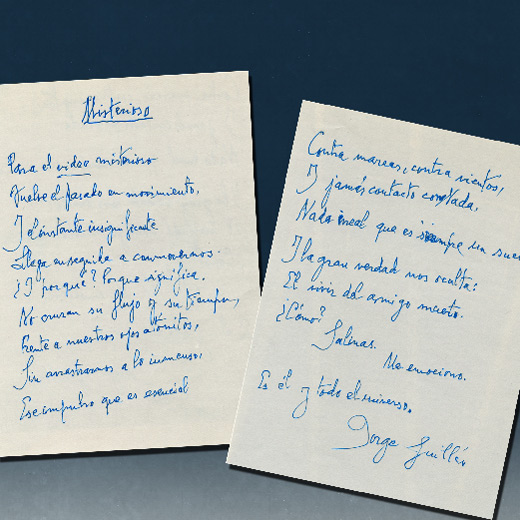 Misterioso
Para el video misterioso
Vuelve el pasado en movimiento,
Y el instante insignificante
Llega enseguida a conmovernos.
¿Y por qué? Porque significa.
No cruzan su flujo y su tiempo,
Frente a nuestros ojos atónitos,
Sin arrastrarnos a lo inmenso,
Ese impulso que es esencial
Contra mareas, contra vientos,
Y jamás contacto con
Nada irreal que es siempre un
Y la gran verdad nos oculta:
El vivir del amigo muerto.
¿Cómo?
Salinas.
Me emociono.
Es él y todo el universo.
Jorge Guillén